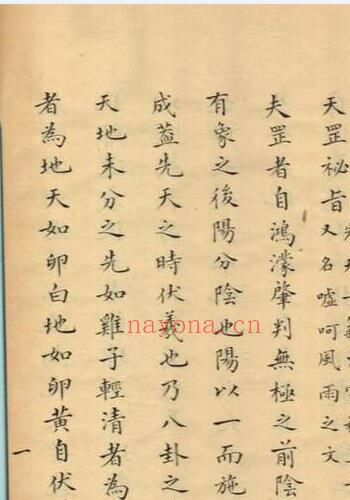 天罡祕旨又名噓呵風雨之文
夫罡者自鴻濛肇判無極之前陰
有象之後陽分陰也陽以一而施
成蓋先天之時伏羲也乃八卦之
天地未分之先如雞子輕清者為
者為地天如卵白地如卵黃自伏
一
nayona.cn